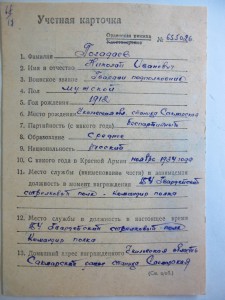 Учетная карточка
Орденская книжка
№ 635026
1. Фамилия Погадаев
2. Имя и отчество Николай Иванович
3. Воинское звание Гвардии подполковник
4. Пол мужской
5. Год рождения 1912
6. Место рождения станица Сакмарская
7. Партийность (с какого года) беспартийный
8. Образование Среднее
9. Национальность русский
10. С какого года в Красной Армии ноябрь 1934 года
11. Место службы (наименование части) и занимаемая
должность в момент награждения Гвардейский
стрелковый полк - Командир полка
12. Место службы и должность в настоящее время
Гвардейский стрелковый полк
Командир полка
13. Домашний адрес награжденного Чкаловская область
Сакмарский станица Сакмарская
(См. об.)